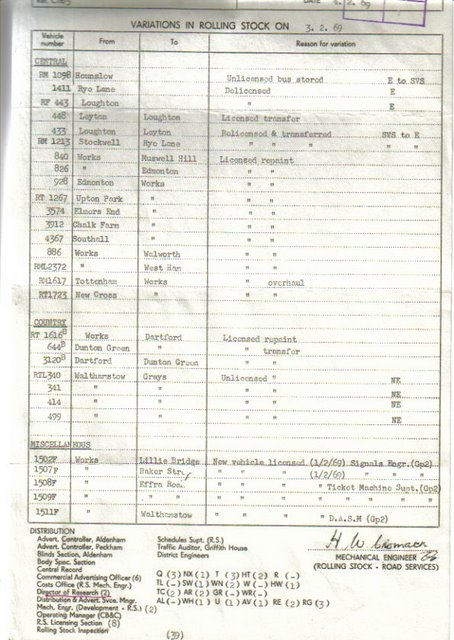 DATE 4. 2. 69
VARIATIONS IN ROLLING STOCK ON 3. 2. 69
Vehicle number From To Reason for variation
CENTRAL
RM 1098 Hounslow Unlicensed bus stored E to SVS
1411 Rye Lane Delicensed E
RF 443 Loughton " E
448 Leyton Loughton Licensed transfer
433 Loughton Leyton Relicensed & transferred SVS to E
RM 1213 Stockwell Rye Lane " " " "
840 Works Muswell Hill Licensed repaint
826 " Edmonton " "
928 Edmonton Works " "
RT 1267 Upton Park " " "
3574 Elmers End " " "
3912 Chalk Farm " " "
4367 Southall " " "
886 Works Walworth " "
RML2372 " West Ham " "
RM1617 Tottenham Works " overhaul
RT1723 New Cross " " "
COUNTRY
RT 1616B Works Dartford Licensed repaint
644B Dunton Green " " transfer
3120B Dartford Dunton Green " "
RTL340 Walthamstow Grays Unlicensed " NE
341 " " " " NE
414 " " " " NE
499 " " " " NE
MISCELLANEOUS
1502F Works Lillie Bridge New vehicle licensed (1/2/69) Signals Engr.(Gp2)
1507F " Baker Str. " " " (1/2/69) " "
1508F " Effra Road " " " " Ticket Machine Supt.(Gp2)
1509F " " " " " " " " " "
1511F " Walthamstow " " " " D.A.S.M (Gp2)
DISTRIBUTION
Advert. Controller, Aldenham Schedules Supt. (R.S.)
Advert. Controller, Peckham Traffic Auditor, Griffith House
Blinds Section, Aldenham District Engineers
Body Spec. Section
Central Record
MECHANICAL ENGINEER
(ROLLING STOCK - ROAD SERVICES)
Commercial Advertising Officer (6) Q (3) NX (1) T (3) HT (2) R (-)
Costs Office (R.S. Mech. Engr.) TL (-) SW (1) WN (2) W (-) HW (1)
Director of Research (2) TC (2) AR (2) GR (-) WR (-)
Distribution & Advert. Svce. Mngr. AL (-) WH (1) U (1) AV (1) RE (2) RG (3)
Mech. Engr. (Development - R.S.) (2)
Operating Manager (CB&C)
R.S. Licensing Section (8)
Rolling Stock Inspection
(39)